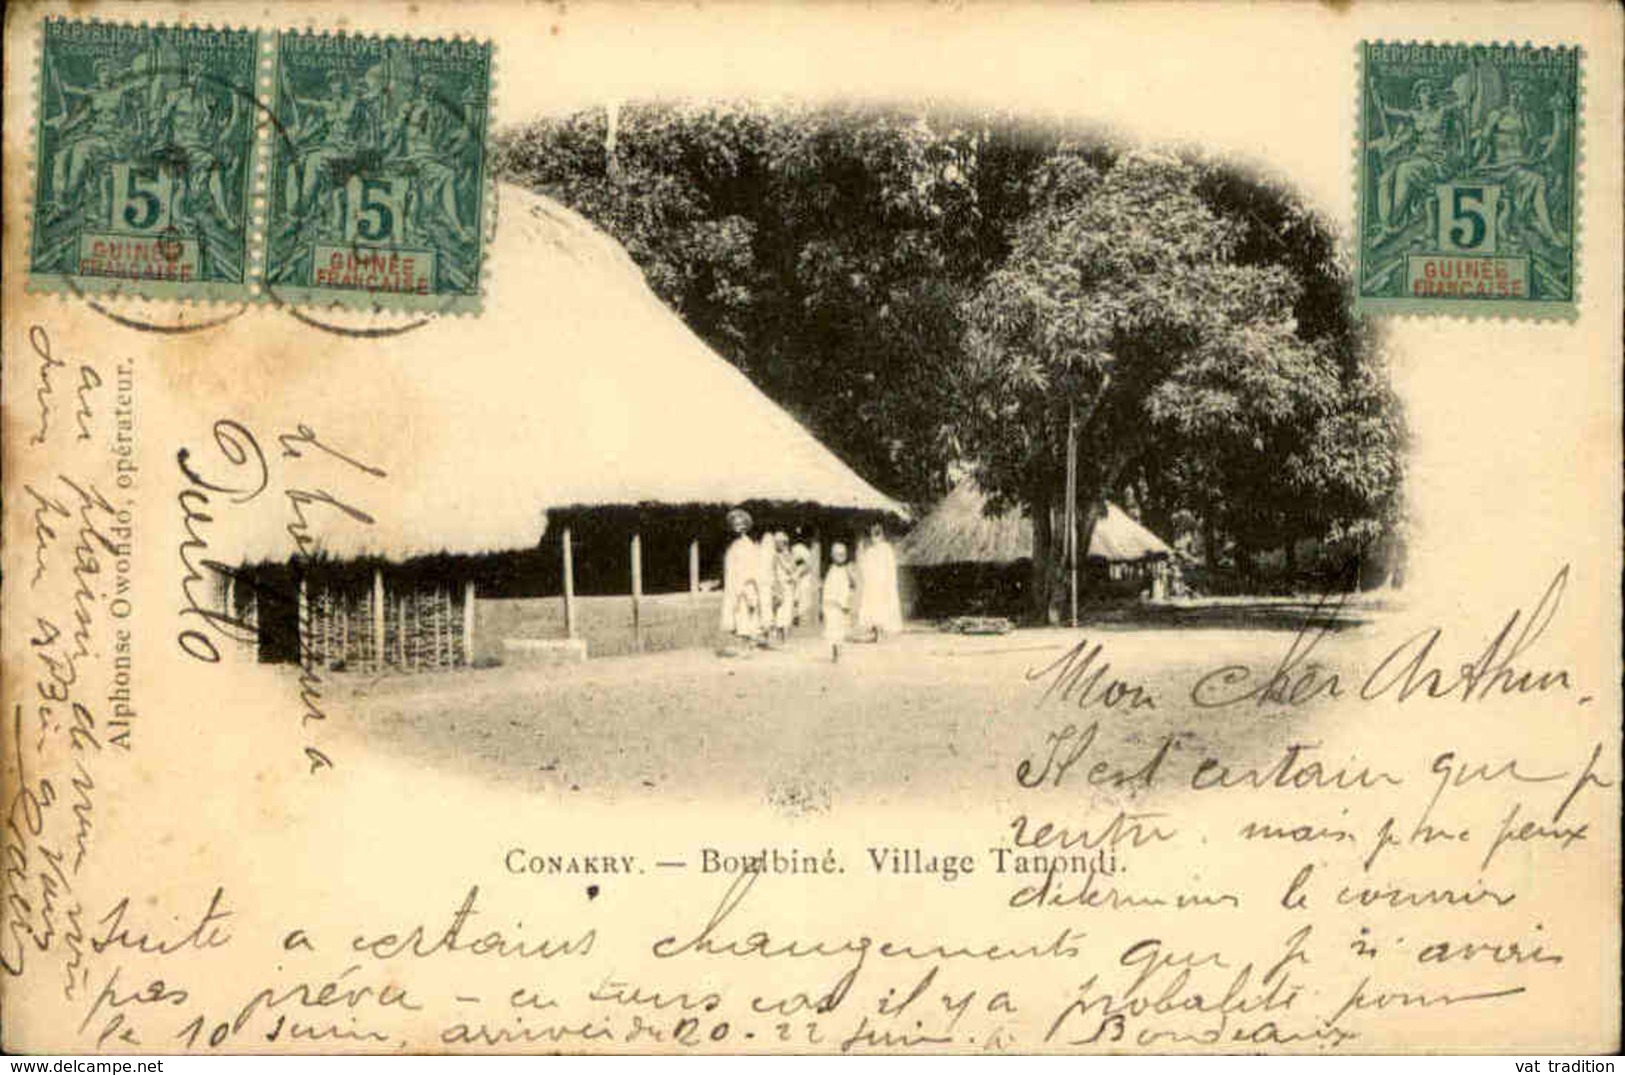 REPVBLIQVE FRANÇAISE
COLONIES POSTES
5
GUINÉE
FRANÇAISE
REPVBLIQVE FRANÇAISE
COLONIES POSTES
5
GUINÉE
FRANÇAISE
REPVBLIQVE FRANÇAISE
COLONIES POSTES
5
GUINÉE
FRANÇAISE
Alphonse Owondo, opérateur.
Mon cher Arthur.
Il est certain que je
rentre. mais je ne peux
déterminer le courrier
CONAKRY. — Boulbiné. Village Tanondi.
Suite a certains changements que je n'avais
pas prévu - en tous cas il y a probabilité pour
le 10 Juin, arrivée du 20-22 Juin. à Bordeaux
le bonjour à
Paulo
au plaisir de nous revoir
dans peu
à vous
vat tradition